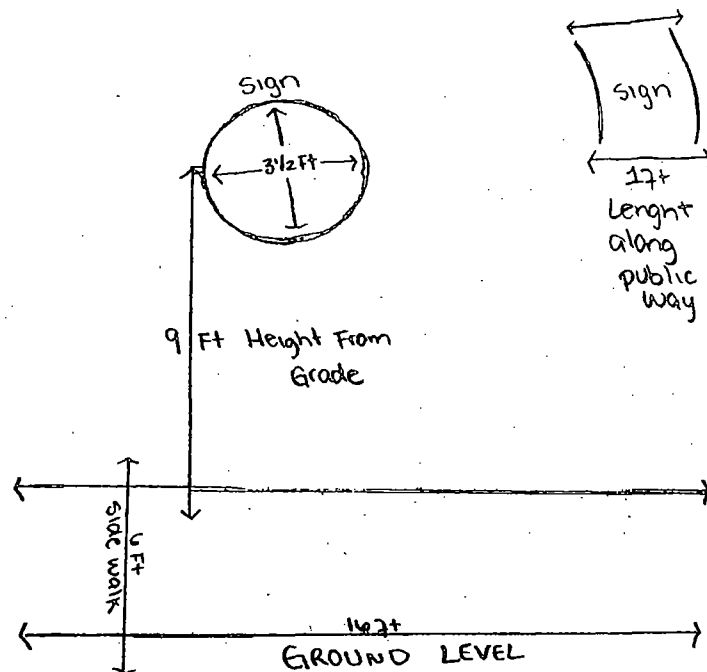 Sign
3 1/2 Ft
Sign
17+
Lenght
along
public
Way
9 Ft Height From
Grade
6 Ft
Side walk
167+
GROUND LEVEL